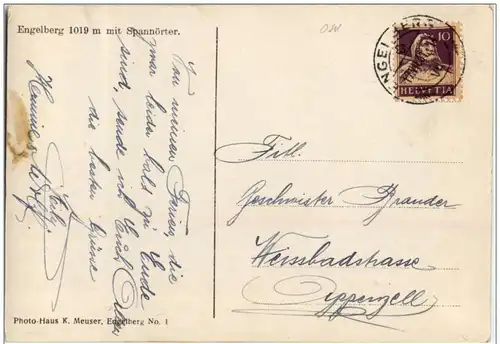 Engelberg 1019 m mit Spannörter.
Von meinen Ferien, die
zwar leider bald zu Ende
sind, sende ich Euch Allen
die besten Grüsse
10
HELVETIA
Titl.
Geschwister Brander
Weissbadstrasse
Appenzell
Photo-Haus K. Meuser, Engelberg No. 1